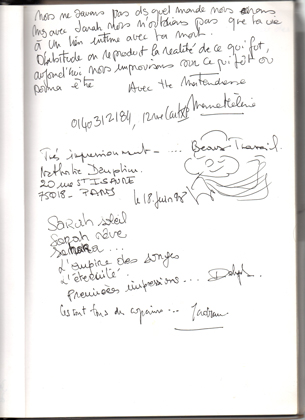 nous ne savons pas duquel monde nous avons
avec Sarah nous n'oublions pas que la vie
a un lien intime avec la mort.
D'habitude on reproduit la réalité de ce qui fut,
aujourd'hui nous improvisons avec ce qui fût ou
pourra être
Avec the
0140312184, 12 rue
Très impressionnant - .... Beau Travail.
Nathalie Dauphin.
20 rue St ISAURE
75018 - PARIS
le 18 juin 98
Sarah soleil
Sarah rêve
Sahara ...
L'empire des songes
L'éternité.
Premières impressions ...
Ils sont fous ces copains ...